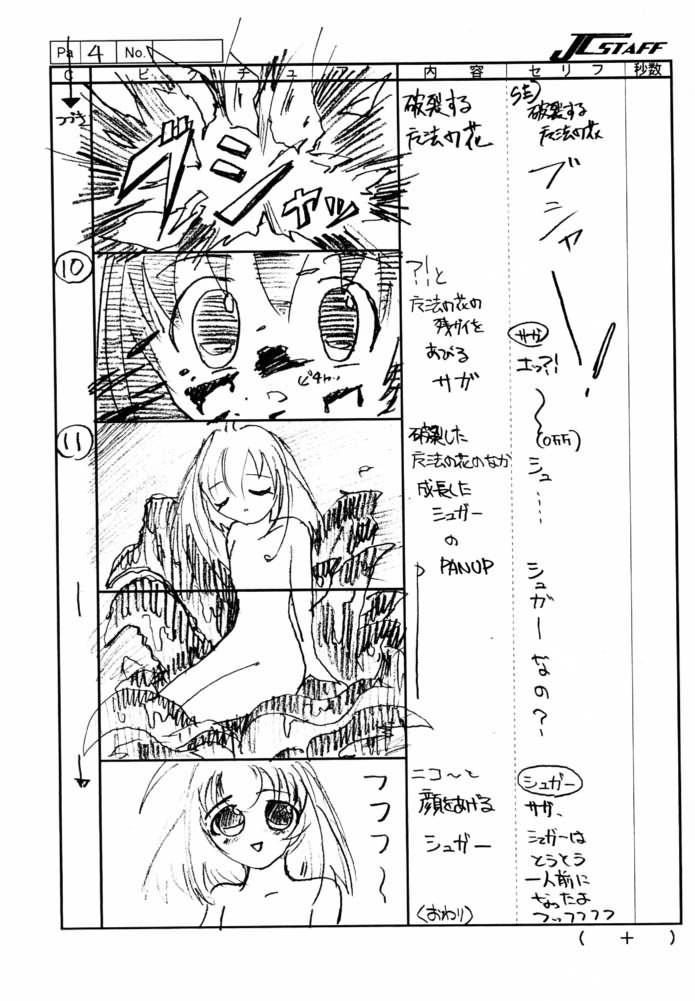 Pa 4 No.
JC STAFF
C ピクチュア 内容 セリフ 秒数
つづき
グシャッ
破裂する
魔法の花
SE)
破裂する
魔法の花
ブシャーッ!
⑩
ピチャッ
?!と
魔法の花の
残ガイを
あびる
サガ
サガ
エッ?!
⑪
破裂した
魔法の花のなか
成長した
シュガー
の
PANUP
(OFF)
シュ……
シュガーなの?
フフフ〜
ニコ〜と
顔をあげる
シュガー
〈おわり〉
シュガー
サガ、
シュガーは
とうとう
一人前に
なったよ
フッフフフフ
( + )